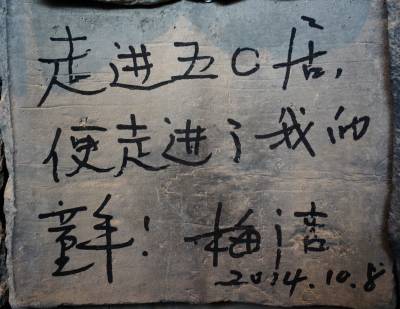 走进五〇居,
便走进了我的
童年! 梅洁
2014.10.8